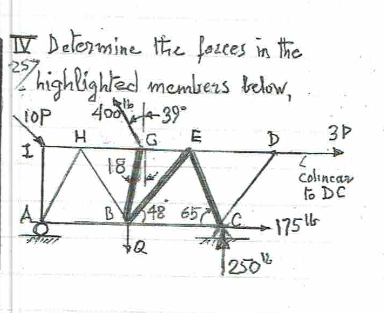 IV Determine the forces in the
25% highlighted members below,
10P 400 lb 39°
I H G E D 3P
18 Colinear
to DC
A B 48° 65° C 175 lb
Q
1250 lb